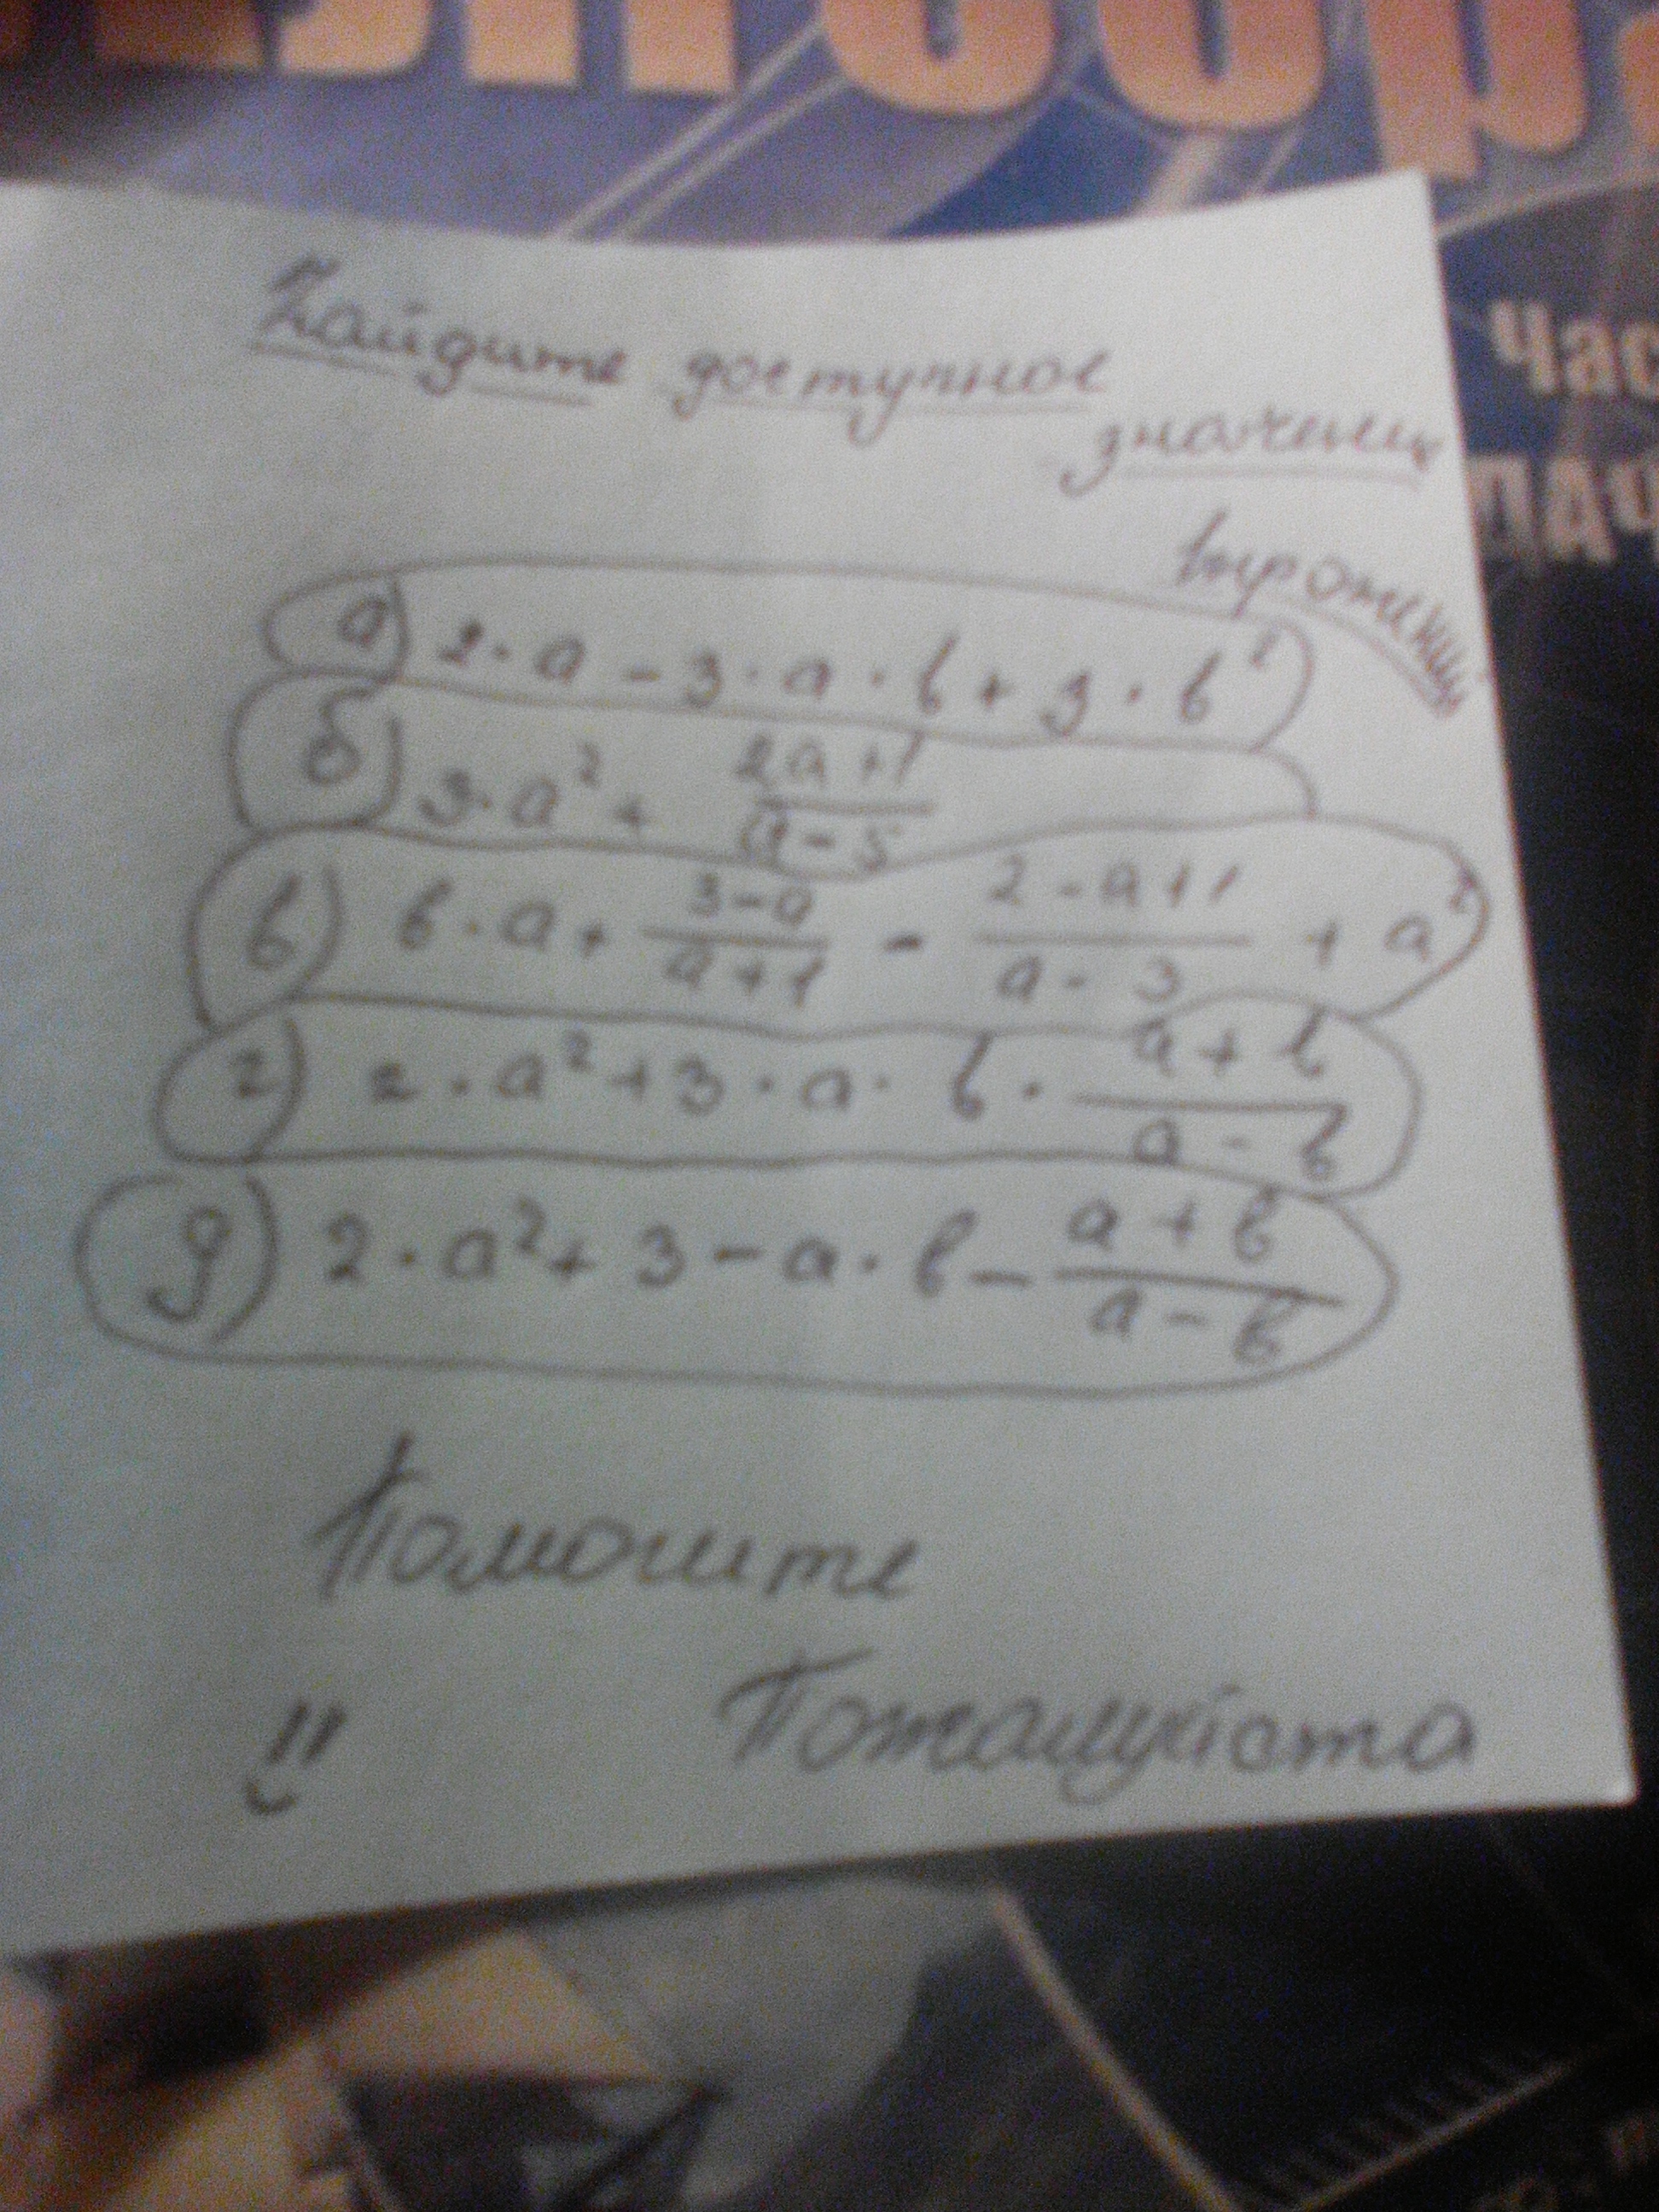 Найдите доступное
значение
выражений
а) 2·a - 3·a·b + 3·b²
б) 3·a² + (2a+1)/(a-5)
в) b·a + (3-a)/(a+1) - (2-a+1)/(a-3) + a²
г) 2·a² + 3·a·b · (a+b)/(a-b)
д) 2·a² + 3-a·b - (a+b)/(a-b)
Помогите
Пожалуйста
Час